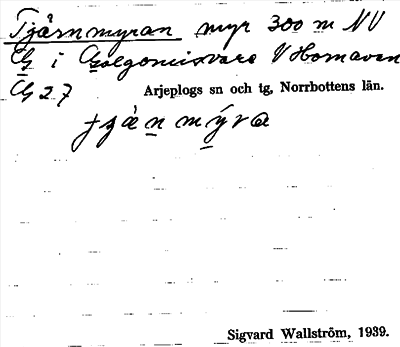 Tjärnmyran myr 300 m NV
G i Galgomisvare V Hornavan
G 27 Arjeplogs sn och tg, Norrbottens län.
Sigvard Wallström, 1939.